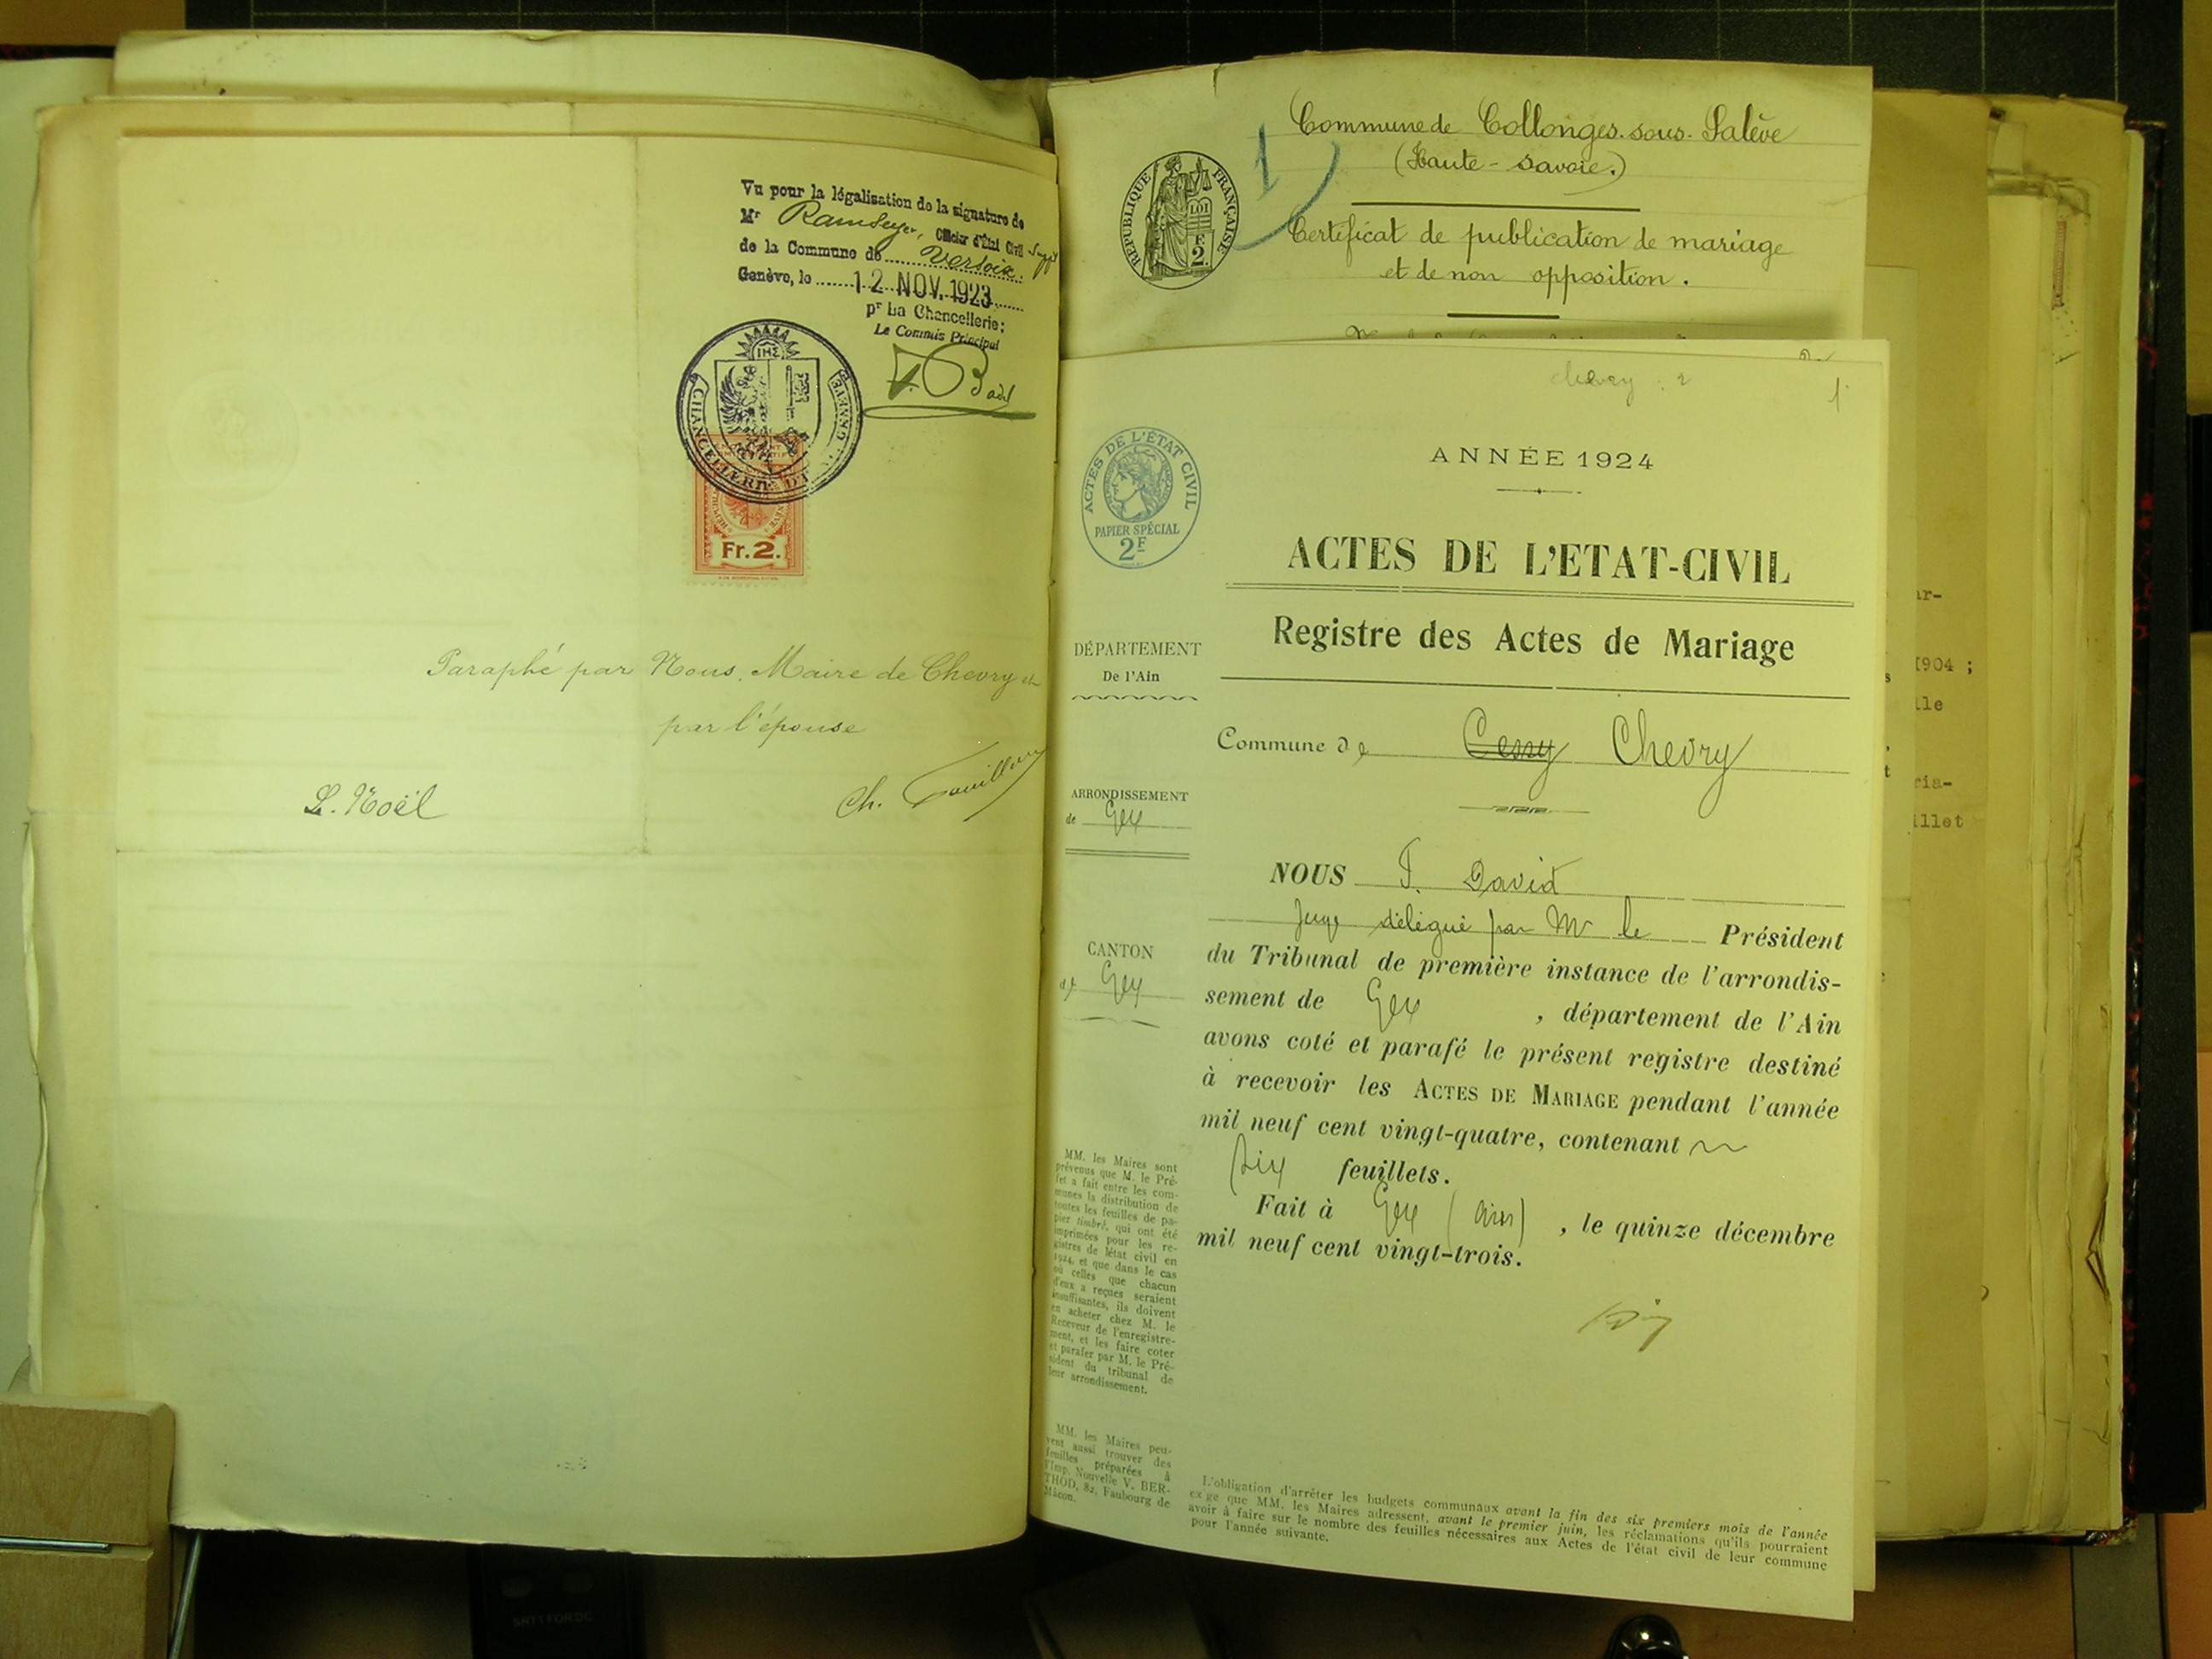 Vu pour la légalisation de la signature de
Mr Ramseyer, Officier d'État Civil
de la Commune de Versoix
Genève, le 12 NOV. 1923
pr La Chancellerie:
Le Commis Principal
Badel
IHS
CHANCELLERIE DE GENÈVE
Fr.2.
Paraphé par Nous, Maire de Chevry et
par l'épouse
L. Noël
Ch.
Commune de Collonges-sous-Salève
(Haute-Savoie.)
1
RÉPUBLIQUE FRANÇAISE
LOI
E
2.
Certificat de publication de mariage
et de non opposition.
chevry : 2
1
ANNÉE 1924
ACTES DE L'ÉTAT CIVIL
PAPIER SPÉCIAL
2F
ACTES DE L'ETAT-CIVIL
Registre des Actes de Mariage
DÉPARTEMENT
De l'Ain
Commune de Cessy Chevry
ARRONDISSEMENT
de Gex
CANTON
de Gex
NOUS F. David
Juge délégué par Mr le Président
du Tribunal de première instance de l'arrondis-
sement de Gex, département de l'Ain
avons coté et parafé le présent registre destiné
à recevoir les ACTES DE MARIAGE pendant l'année
mil neuf cent vingt-quatre, contenant
six feuillets.
Fait à Gex (Ain), le quinze décembre
mil neuf cent vingt-trois.
MM. les Maires sont
prévenus que M. le Pré-
fet a fait entre les com-
munes la distribution de
toutes les feuilles de pa-
pier timbré, qui ont été
imprimées pour les re-
gistres de l'état civil en
1924, et que dans le cas
où celles que chacun
d'eux a reçues seraient
insuffisantes, ils doivent
en acheter chez M. le
Receveur de l'enregistre-
ment, et les faire coter
et parafer par M. le Pré-
sident du tribunal de
leur arrondissement.
MM. les Maires peu-
vent aussi trouver des
feuilles préparées à
l'Imp. Nouvelle V. BER-
THOD, 82, Faubourg de
Mâcon.
L'obligation d'arrêter les budgets communaux avant la fin des six premiers mois de l'année
exige que MM. les Maires adressent, avant le premier juin, les réclamations qu'ils pourraient
avoir à faire sur le nombre des feuilles nécessaires aux Actes de l'état civil de leur commune
pour l'année suivante.
ar-
1904 ;
lle
ria-
illet